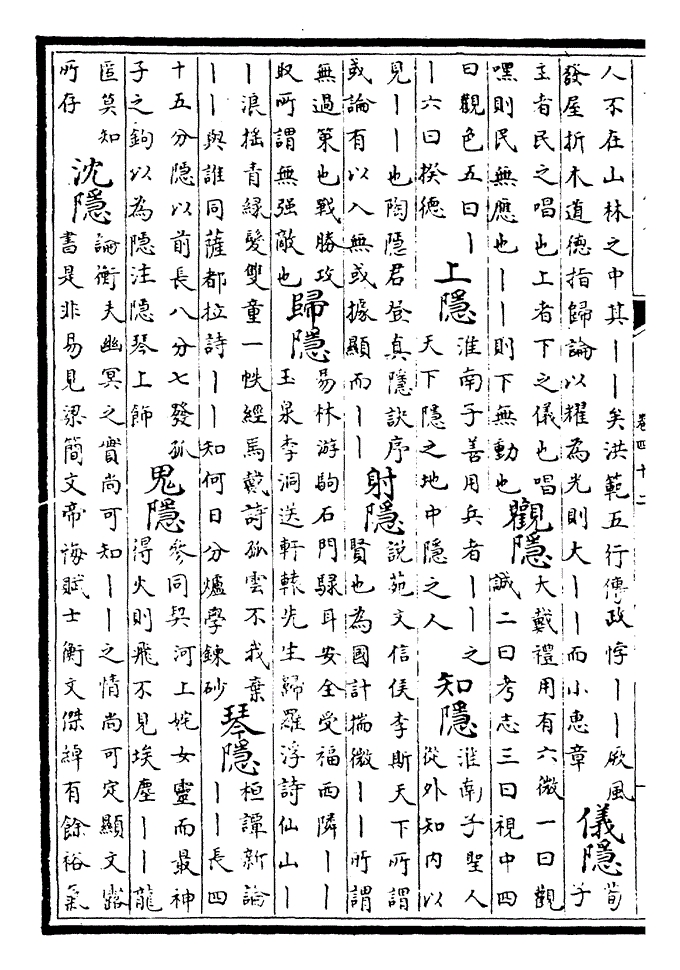 人不在山林之中其丨丨矣洪範五行傳政悖丨丨厥風
發屋折木道德指歸論以耀為光則大丨丨而小惠章
儀隱
荀
子
主者民之唱也上者下之儀也唱
嘿則民無應也丨丨則下無動也
觀隱
大戴禮用有六微一曰觀
誠二曰考志三曰視中四
曰觀色五曰丨
丨六曰揆德
上隱
淮南子善用兵者丨丨之
天下隱之地中隱之人
知隱
淮南子聖人
從外知内以
見丨丨也陶隱君登真隱訣序
或論有以入無或據顯而丨丨
射隱
說苑文信侯李斯天下所謂
賢也為國計揣微丨丨所謂
無過策也戰勝攻
取所謂無强敵也
歸隱
易林游駒石門騄耳安全受福西隣丨丨
玉泉李洞送軒轅先生歸羅浮詩仙山丨
丨浪摇青緑髮雙童一帙經馬戴詩孤雲不我棄
丨丨與誰同薩都拉詩丨丨知何日分爐學鍊砂
琴隱
桓譚新論
丨丨長四
十五分隱以前長八分七發孤
子之鉤以為隱注隱琴上飾
鬼隱
參同契河上姹女靈而最神
得火則飛不見埃塵丨丨龍
匿莫知
所存
沈隱
論衡夫幽冥之實尚可知丨丨之情尚可定顯文露
書是非易見梁簡文帝誨賦士衡文傑綽有餘裕氣
卷四十二